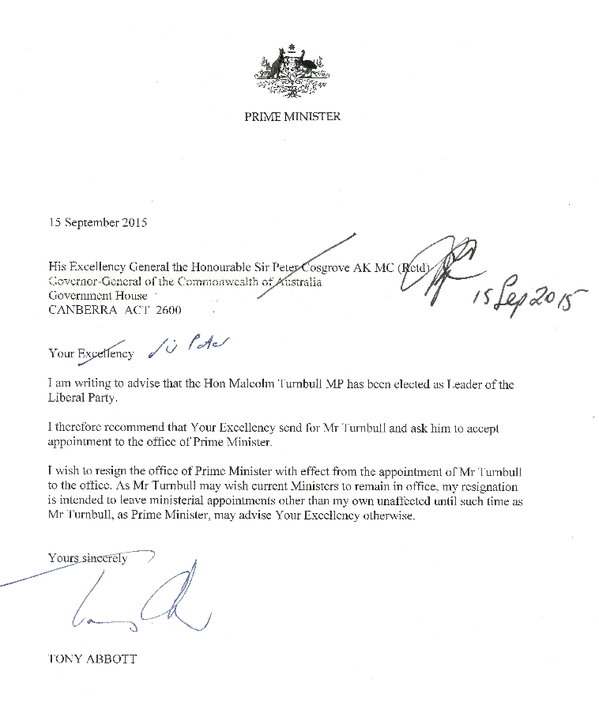 PRIME MINISTER
15 September 2015
His Excellency General the Honourable Sir Peter Cosgrove AK MC (Retd)
Governor-General of the Commonwealth of Australia
Government House
CANBERRA ACT 2600
15 Sep 2015
Your Excellency Sir Peter
I am writing to advise that the Hon Malcolm Turnbull MP has been elected as Leader of the
Liberal Party.
I therefore recommend that Your Excellency send for Mr Turnbull and ask him to accept
appointment to the office of Prime Minister.
I wish to resign the office of Prime Minister with effect from the appointment of Mr Turnbull
to the office. As Mr Turnbull may wish current Ministers to remain in office, my resignation
is intended to leave ministerial appointments other than my own unaffected until such time as
Mr Turnbull, as Prime Minister, may advise Your Excellency otherwise.
Yours sincerely
TONY ABBOTT